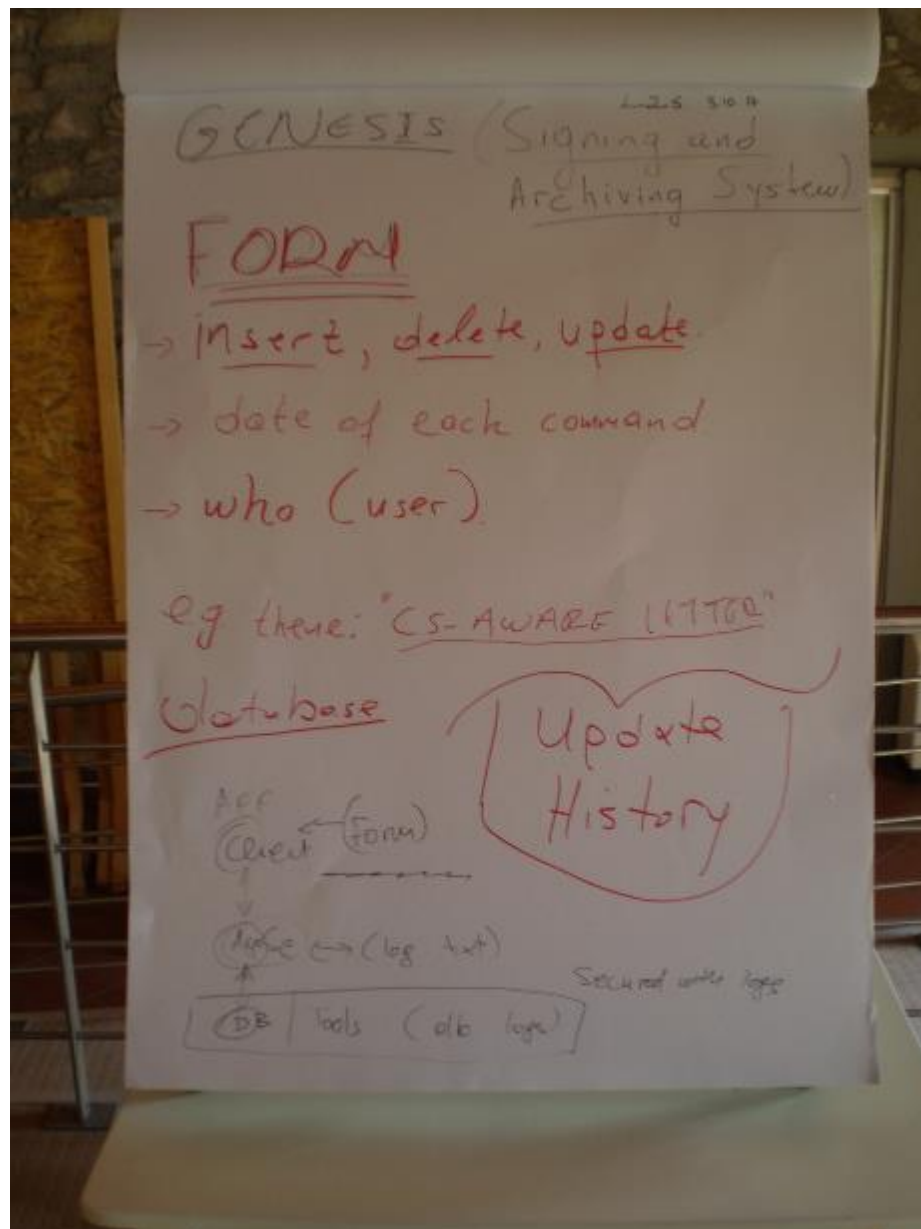 GENESIS (Signing and
Archiving System)
FORM
→ insert, delete, update
→ date of each command
→ who (user)
eg theme: "CS-AWARE LETTER"
database
Update
History
Client ← (Form)
↔ (log txt)
DB tools (db logs)
Secured logs